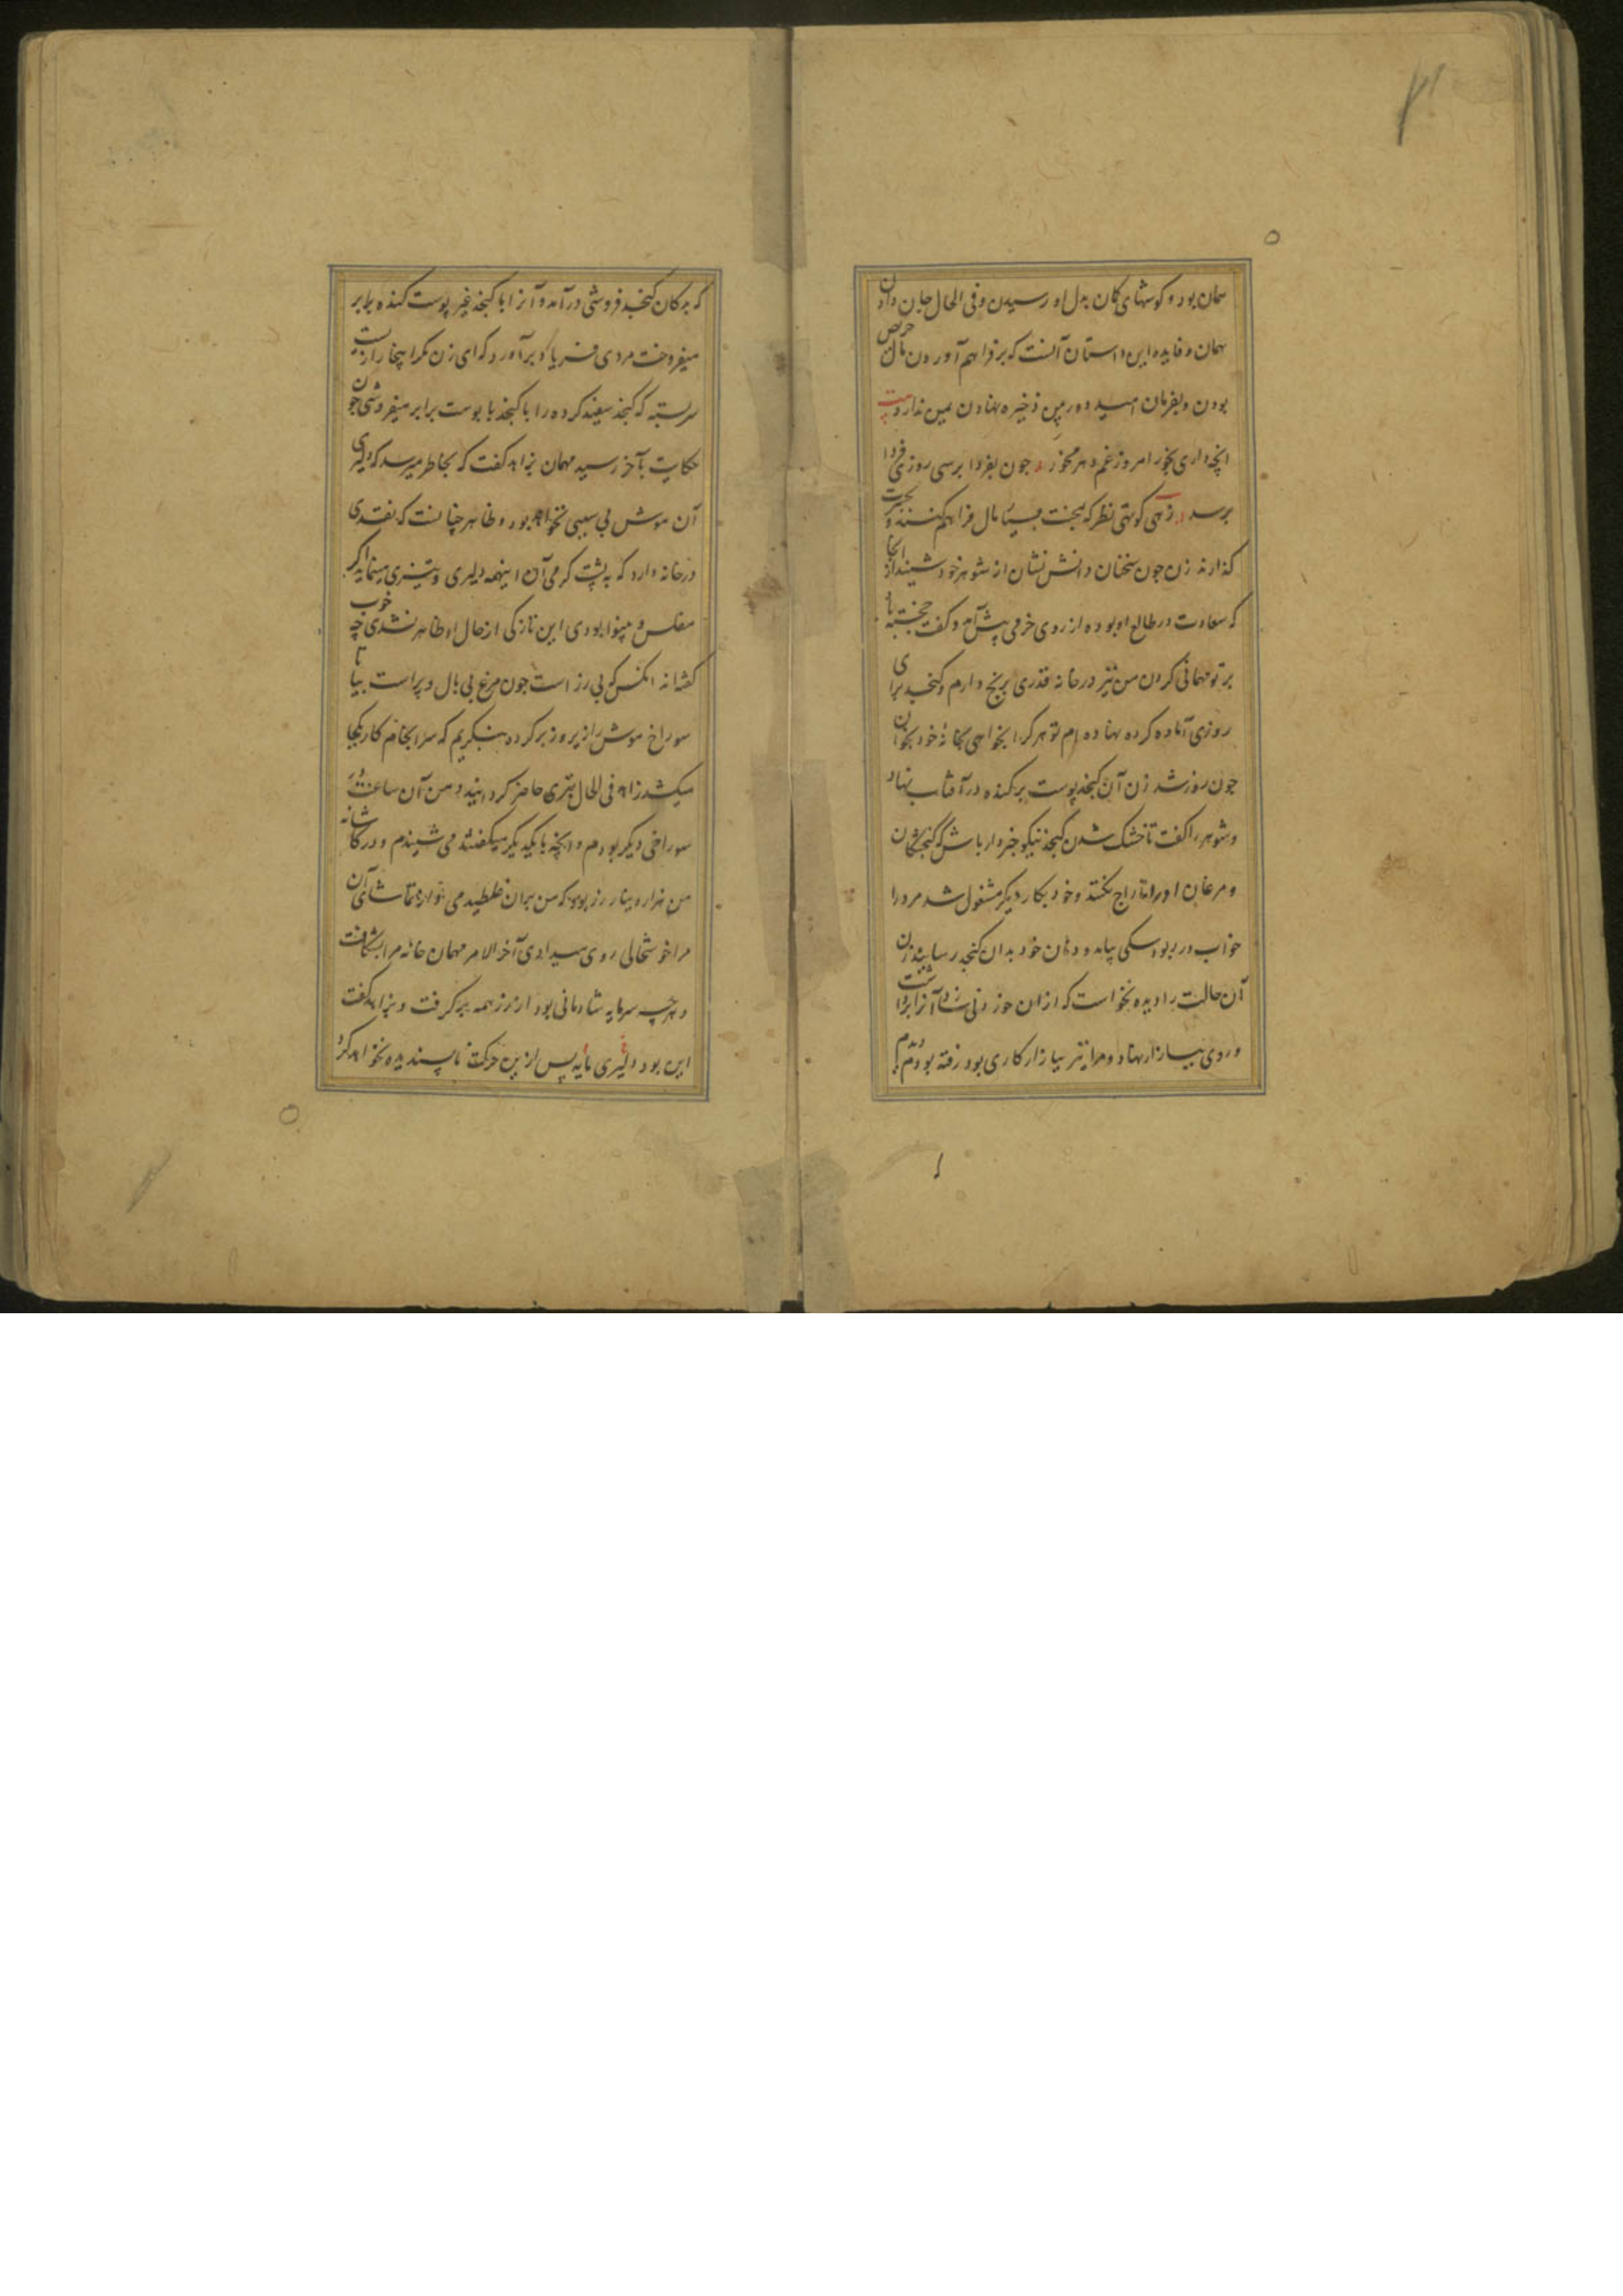 همان بود و گوشهای کمان بدل او رسیدن و فی الحال جان دادن
همان و فایده این داستان آنست که بر فراهم آوردن مال حرص
بودن و بفرمان امید دور پس ذخیره نهادن یمن ندارد بیت
انچه داری بخور امروز غم دهر مخور چون بفردا برسی روزی فردا
برسد زهی کوتهی نظر که بمحنت بسیار مال فراهم کنند و بحسرت
گذارند زن چون سخنان دانش نشان از شوهر خود شنید از آنجا
که سعادت در طالع او بوده از روی خرمی پیش آمد و گفت خجسته باد
بر تو مهمانی کردن من نیز در خانه قدری برنج دارم و کنجد برای
روزی آماده کرده نهاده ام تو هر کرا بخواهی بخانه خود بخوان
چون روز شد زن آن کنجد پوست برکنده در آفتاب نهاد
و شوهر را گفت تا خشک شدن کنجد نیکو خبردار باش که گنجشکان
و مرغان او را تاراج نکنند و خود بکار دیگر مشغول شد مرد را
خواب در ربود سگی بیامد و دهان خود بدان کنجد رسانید زن
آن حالت را دیده نخواست که ازان خوردنی سازد آنرا برداشت
و روی ببازار نهاد و مرا نیز ببازار کاری بود رفته بودم دیدم
که بدکان کنجد فروشی درآمد و آنرا با کنجد غیر پوست کنده برابر
میفروخت مردی فریاد برآورد که ای زن مگر اینجا رازیست
سربسته که کنجد سفید کرده را با کنجد با پوست برابر میفروشی چون
حکایت بآخر رسید مهمان بزاهد گفت که بخاطر میرسد که دلیری
آن موش بی سببی نخواهد بود و ظاهر چنانست که نقدی
در خانه دارد که به پشت گرمی آن اینهمه دلیری و تیزی مینماید اگر
مفلس و بینوا بودی این تازگی از حال او ظاهر نشدی چه خوب
گفته اند انکس که بی زر است چون مرغ بی بال و پر است بیا تا
سوراخ موش را زیر و زبر کرده بنگریم که سرانجام کار بکجا
میکشد زاهد فی الحال تبری حاضر گردانید و من آن ساعت در
سوراخی دیگر بودم و انچه با یکدیگر میگفتند می شنیدم و در کاشانه
من هزار دینار زر بود که من بران غلطیدمی و از تماشای آن
مرا خوشحالی روی میدادی آخر الامر مهمان خانه مرا بشکافت
و هر چه سرمایه شادمانی بود از زر همه برگرفت و بزاهد گفت
این بود دلیری مایه پس ازین حرکت ناپسندیده نخواهد کرد